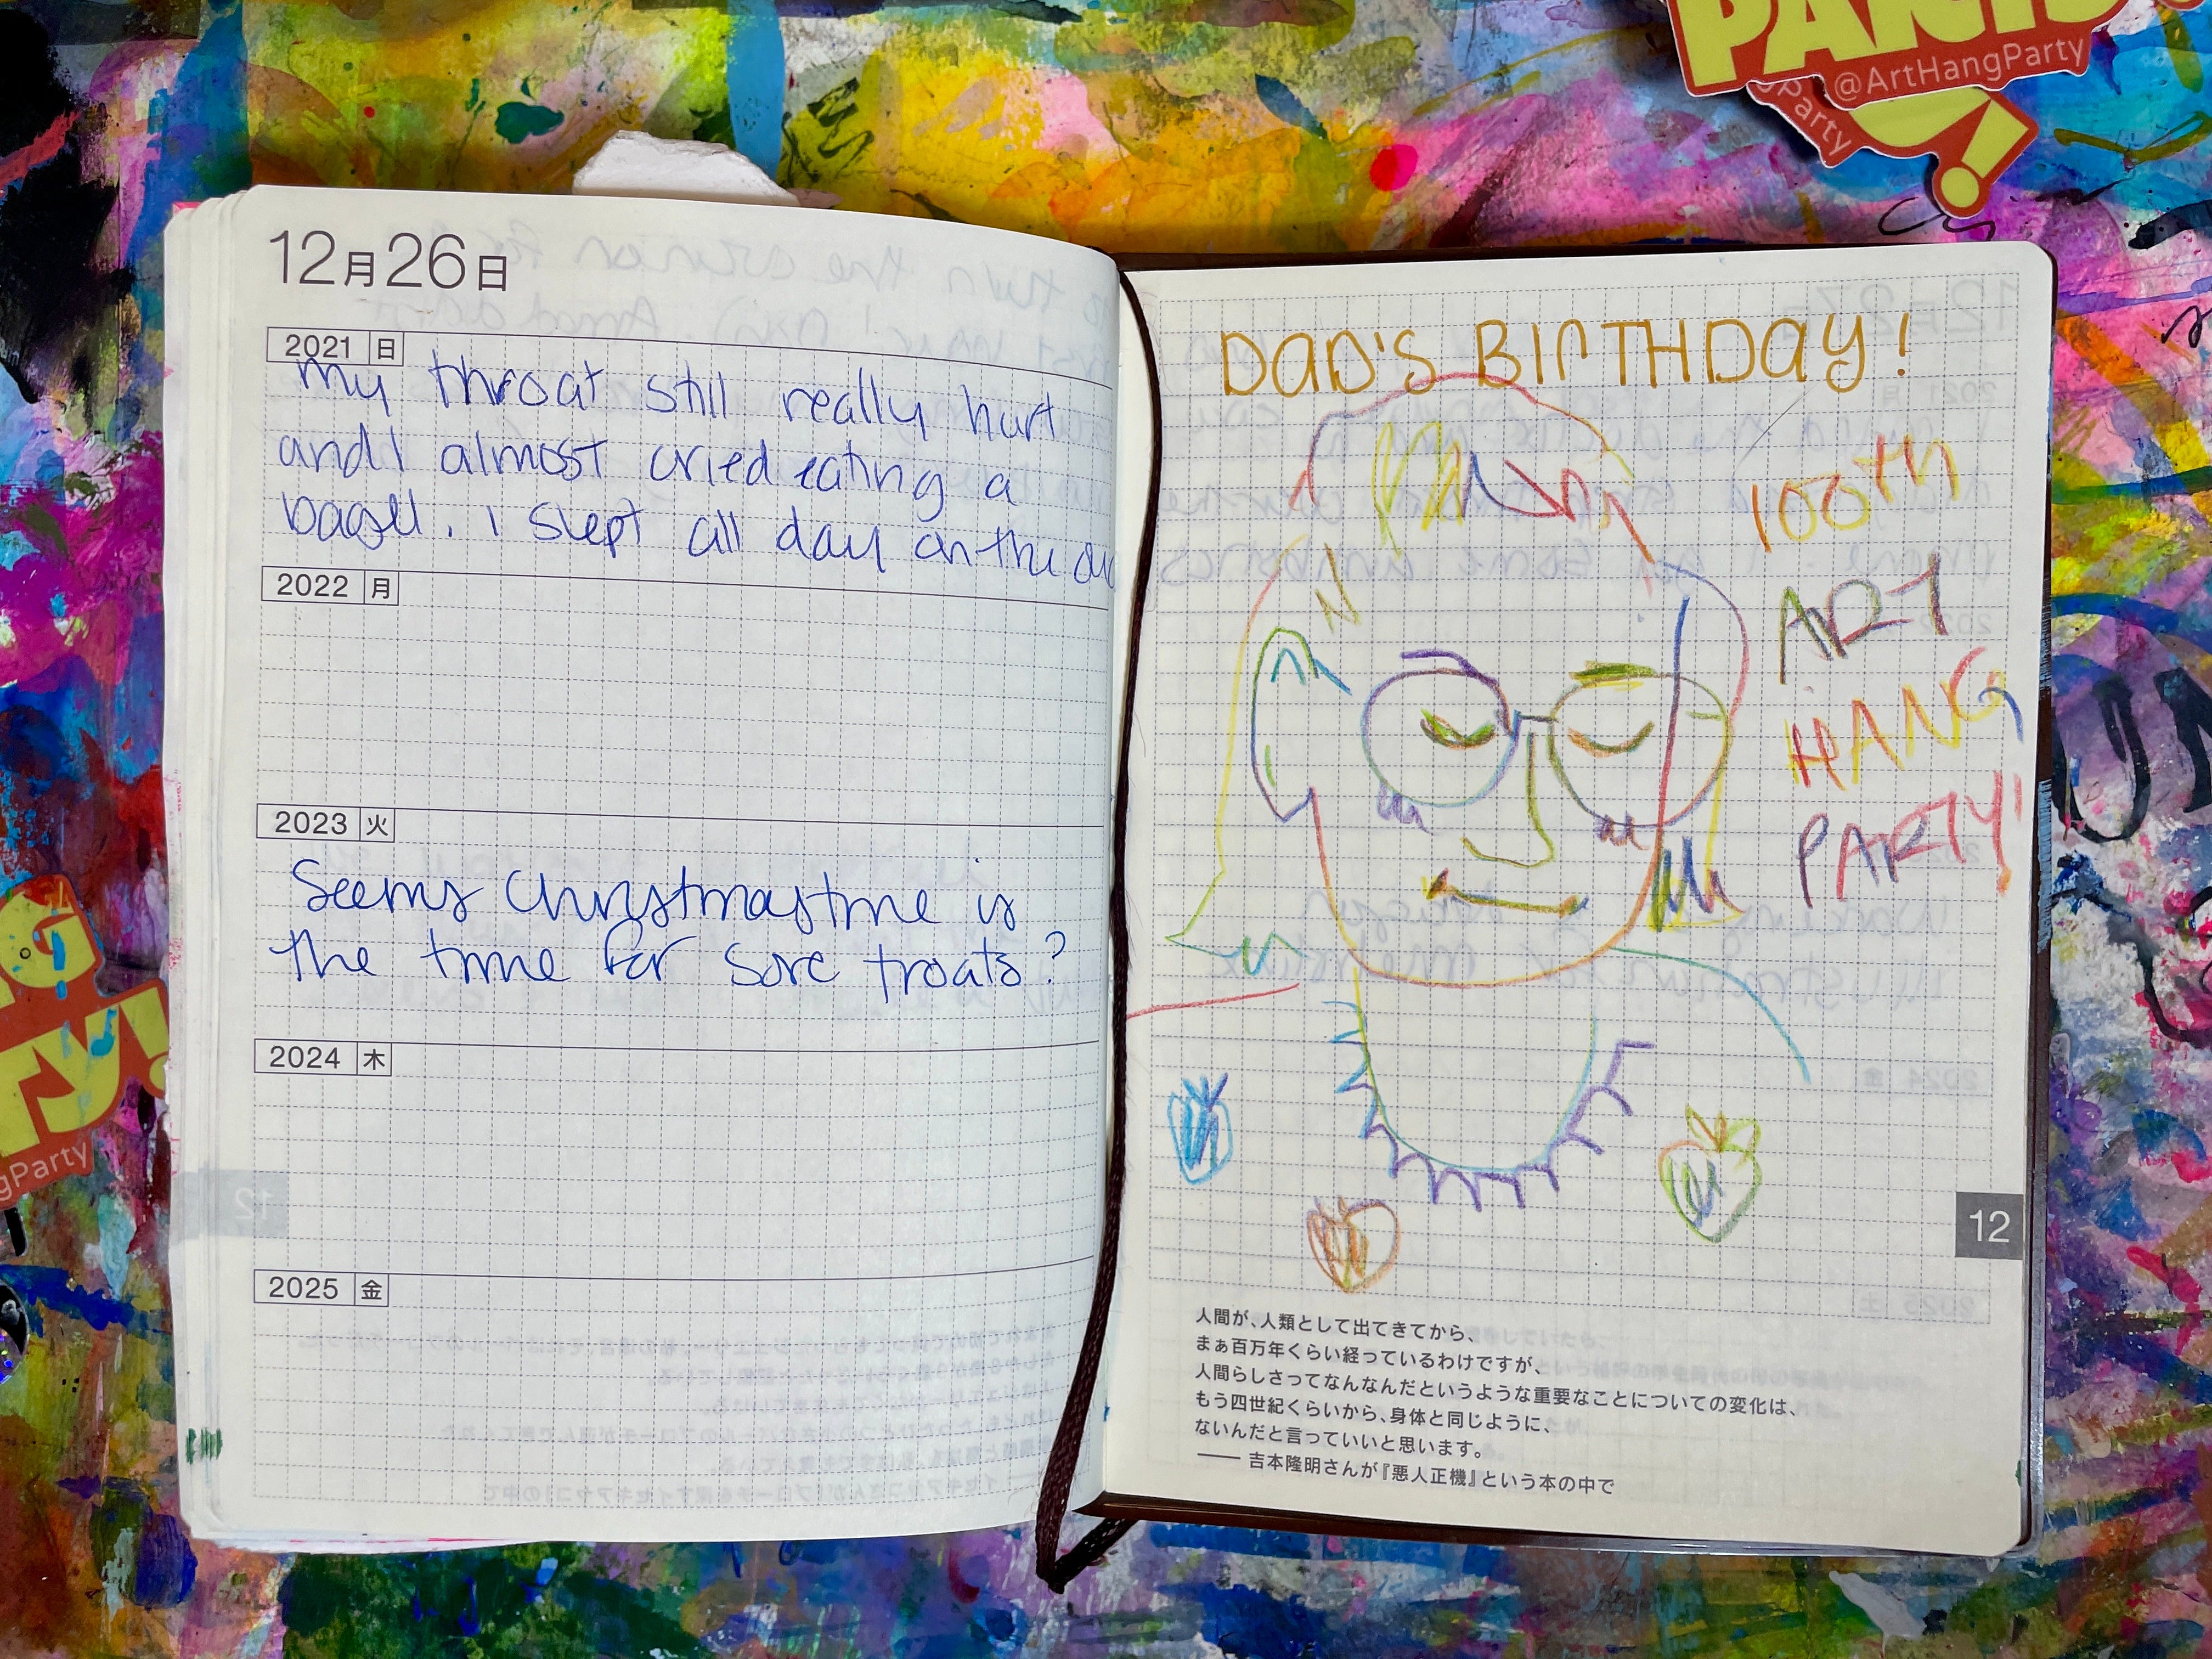 12月26日
2021 日
my throat still really hurt
and I almost cried eating a
bagel. I slept all day on the
2022 月
2023 火
Seems Christmastme is
the time for sore troats?
2024 木
2025 金
DAD'S BIRTHDAY!
100TH
ART
HANG
PARTY!
12
人間が、人類として出てきてから、
まぁ百万年くらい経っているわけですが、
人間らしさってなんなんだというような重要なことについての変化は、
もう四世紀くらいから、身体と同じように、
ないんだと言っていいと思います。
—— 吉本隆明さんが『悪人正機』という本の中で
PARTY
@ArtHangParty
Party
!
NG
TY!
ngParty